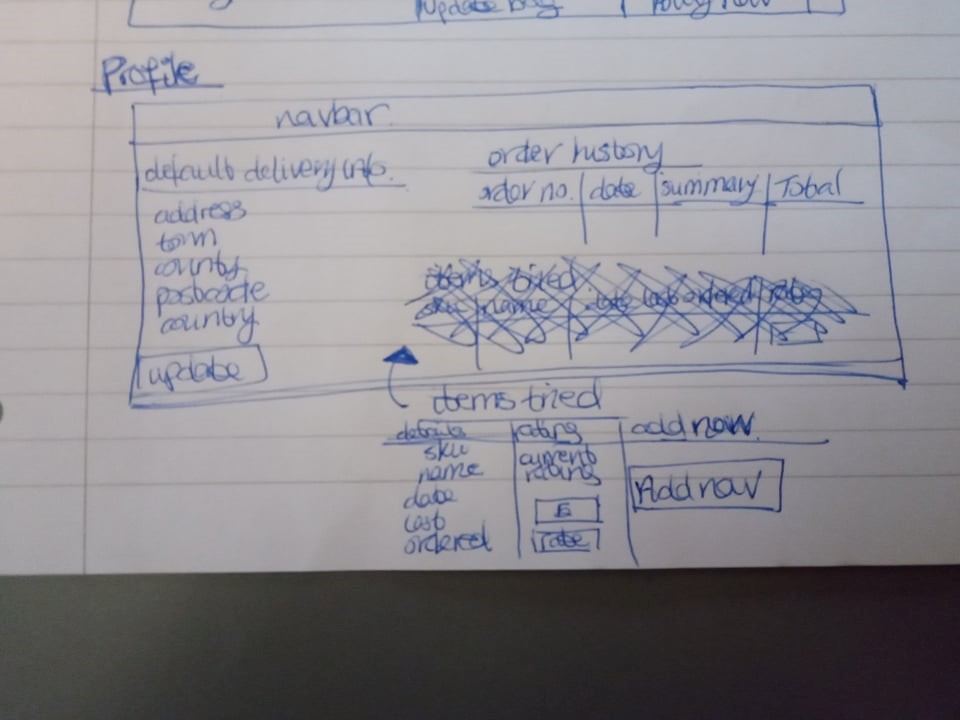 Update bag
Profile
navbar
default delivery info.
address
town
county
postcode
country
update
order history
order no. date summary Total
items tried
sku name date last ordered rates
items tried
details rating add now.
sku
name
date
last
ordered
current
rating
5
rate
Add now